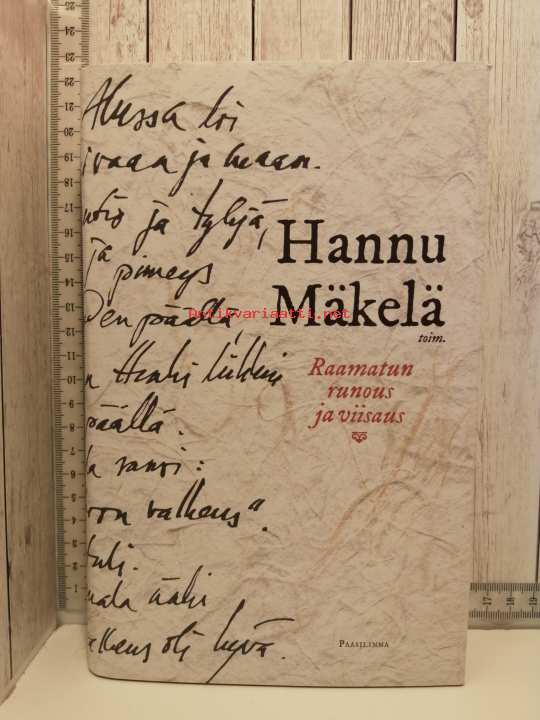 Alussa loi
ivaan ja maan.
utio ja tyhjä,
ja pimeys
den päällä,
n Henki liikkui
päällä.
a sanoi:
oon valkeus".
tuli.
mala näki
alkeus oli hyvä.
Hannu
Mäkelä
toim.
Raamatun
runous
ja viisaus
PAASILINNA
Antikvariaatti.net
25
24
23
22
21
20
19
18
17
16
15
14
13
12
11
10
9
8
7
6
5
4
3
2
1
17
18
19